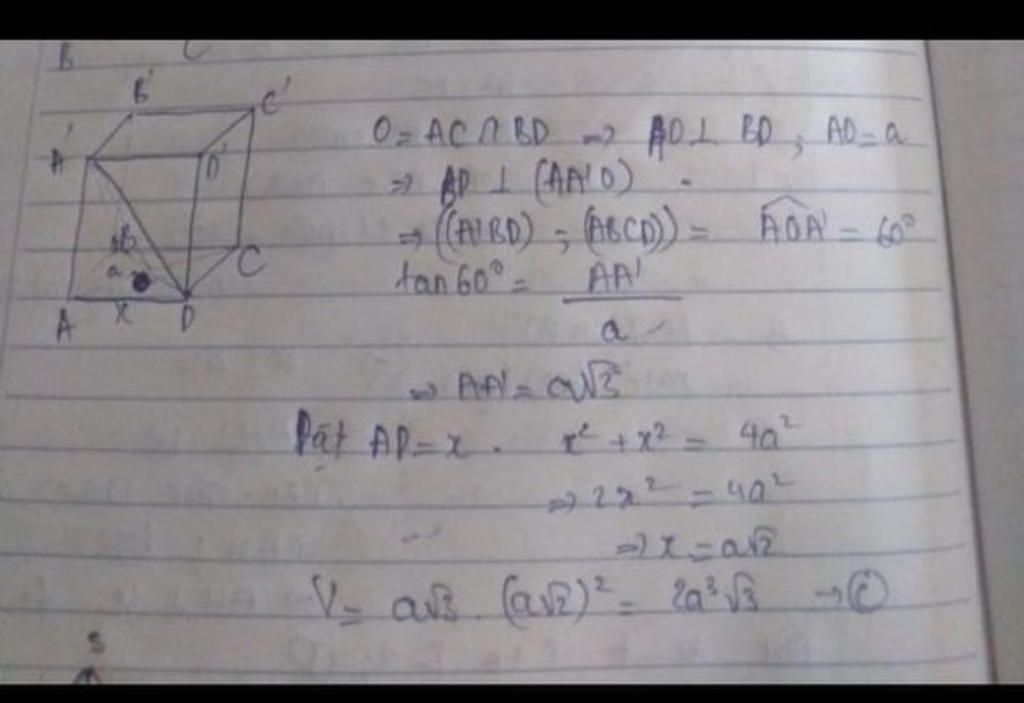 B C
B' C'
A' D'
B
a
C
A x D
O = AC ∩ BD ⇒ AO ⊥ BD ; AO = a
⇒ BD ⊥ (AA'O)
⇒ ((A'BD) ; (ABCD)) = AOA' = 60°
tan60° = AA' / a
⇒ AA' = a√3
Đặt AD = x . x² + x² = 4a²
⇒ 2x² = 4a²
⇒ x = a√2
V = a√3 . (a√2)² = 2a³√3 → C
S